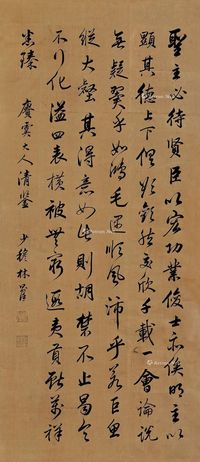 聖主必待賢臣以宏功業俊士亦俟明主以
顯其德上下俱欲歡然交欣千載一會論說
無疑翼乎如鴻毛遇順風沛乎若巨魚
縱大壑其得意如此則胡禁不止曷令
不行化溢四表橫被無窮遐夷貢獻萬祥
臻 賡雲大人清鑒 少穆林則徐